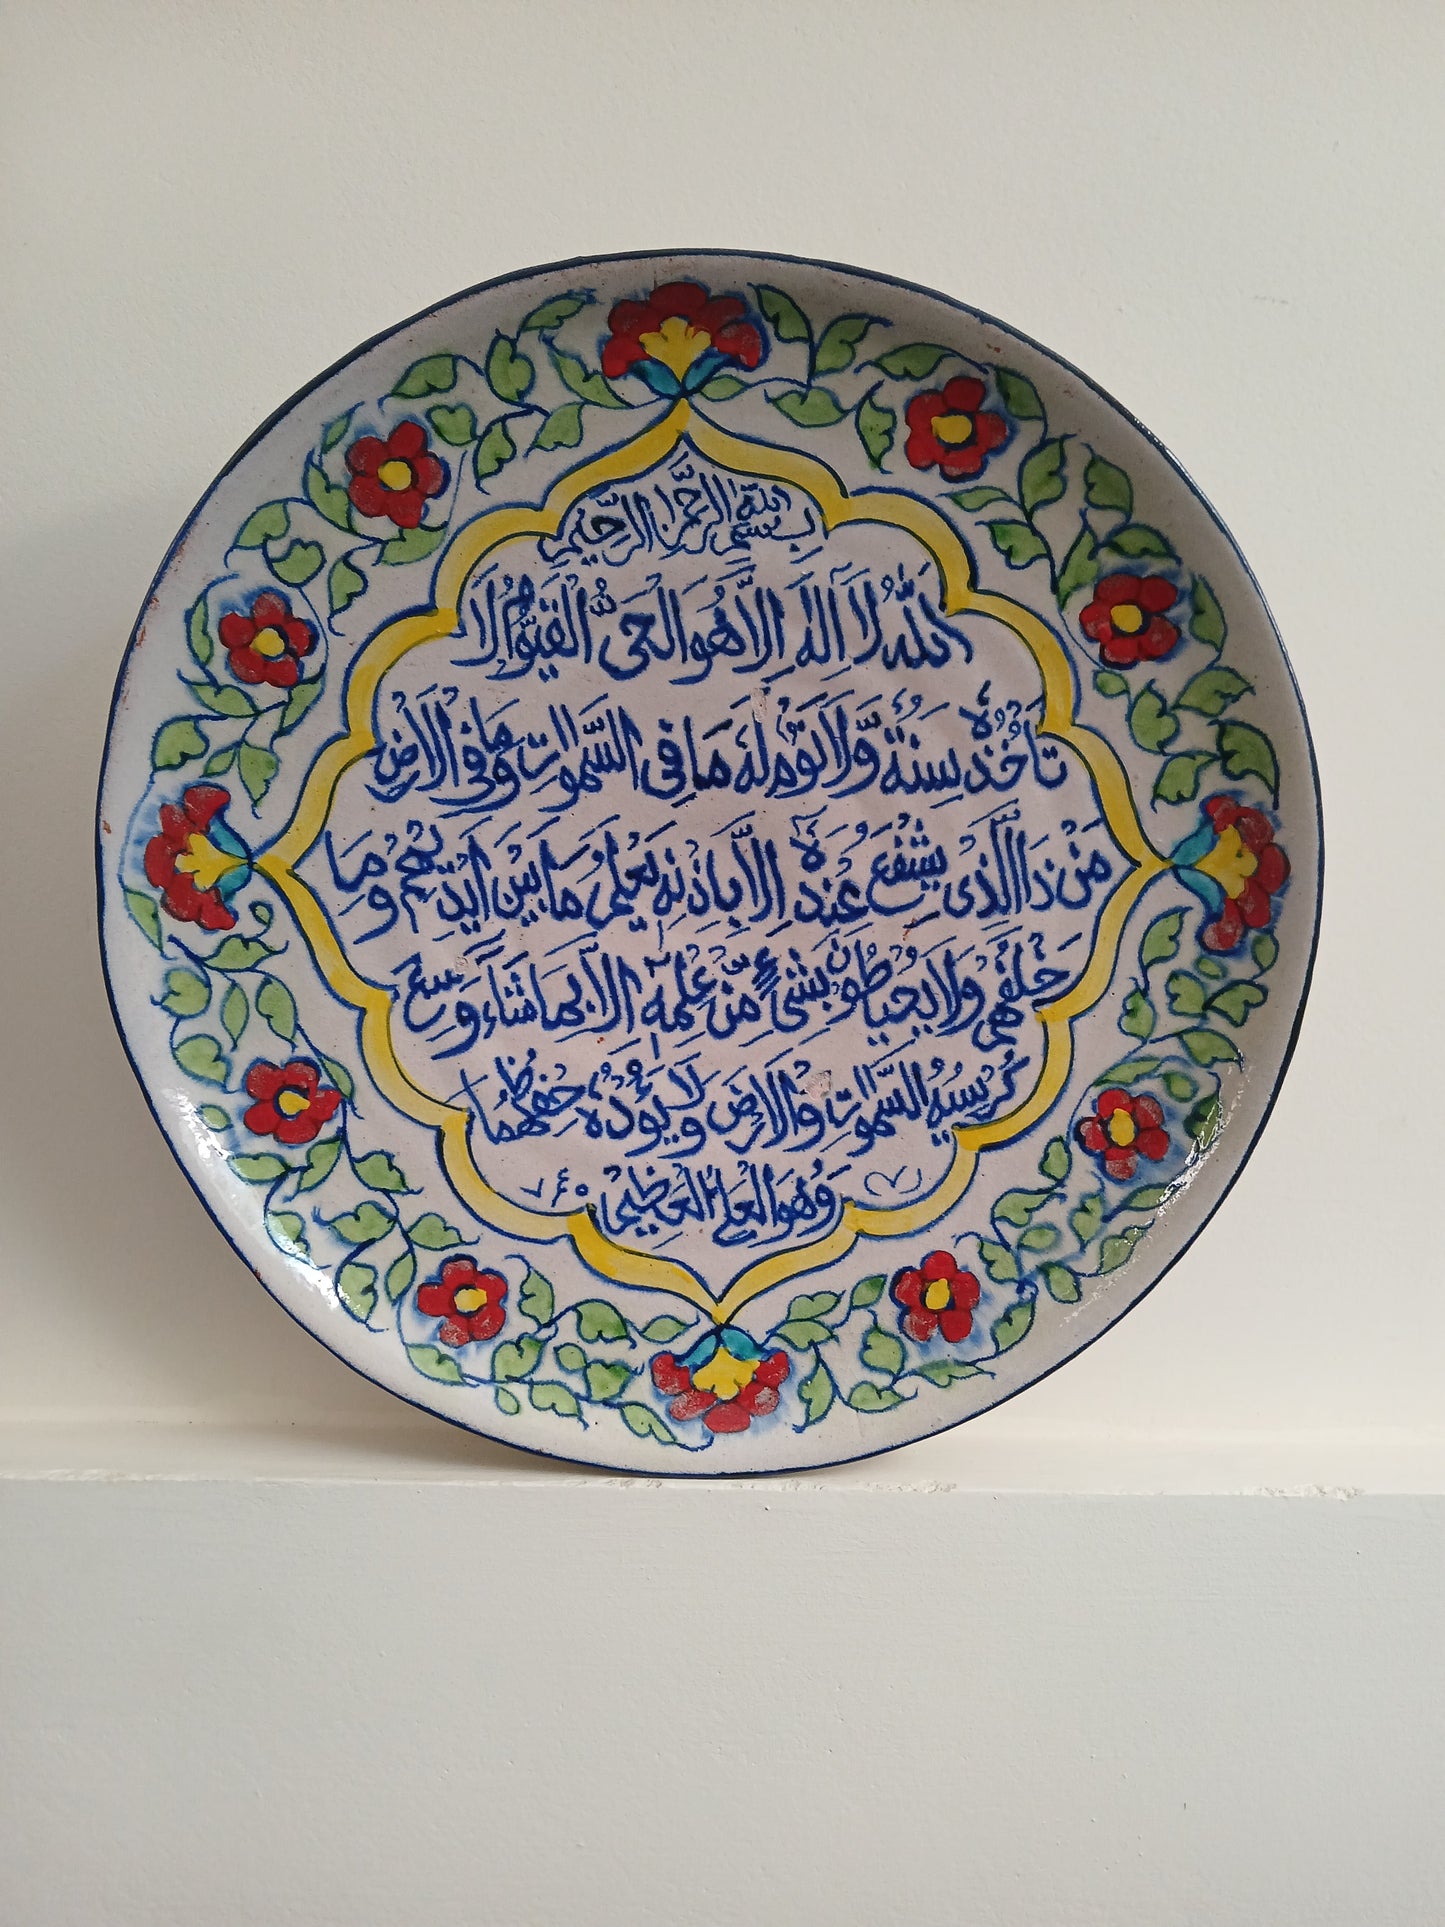 بِسْمِ اللهِ الرَّحْمٰنِ الرَّحِيْمِ
اَللهُ لَآ اِلٰهَ اِلَّا هُوَ الْحَىُّ الْقَيُّوْمُ لَا
تَاْخُذُهٗ سِنَةٌ وَّلَا نَوْمٌ لَهٗ مَا فِى السَّمٰوٰتِ وَمَا فِى الْاَرْضِ
مَنْ ذَا الَّذِىْ يَشْفَعُ عِنْدَهٗ اِلَّا بِاِذْنِهٖ يَعْلَمُ مَا بَيْنَ اَيْدِيْهِمْ وَمَا
خَلْفَهُمْ وَلَا يُحِيْطُوْنَ بِشَىْءٍ مِّنْ عِلْمِهٖٓ اِلَّا بِمَا شَآءَ وَسِعَ
كُرْسِيُّهُ السَّمٰوٰتِ وَالْاَرْضَ وَلَا يَئُوْدُهٗ حِفْظُهُمَا
وَهُوَ الْعَلِىُّ الْعَظِيْمُ